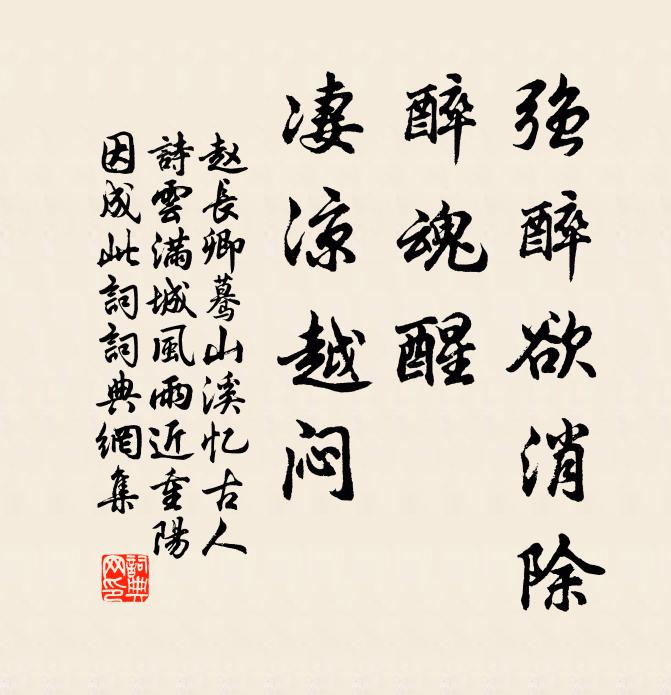 强醉欲消除
醉魂醒
凄凉越闷
赵長卿驀山溪忆古人
詩雲滿城風雨近重陽
因成此詞詞典網集
詞典
网印